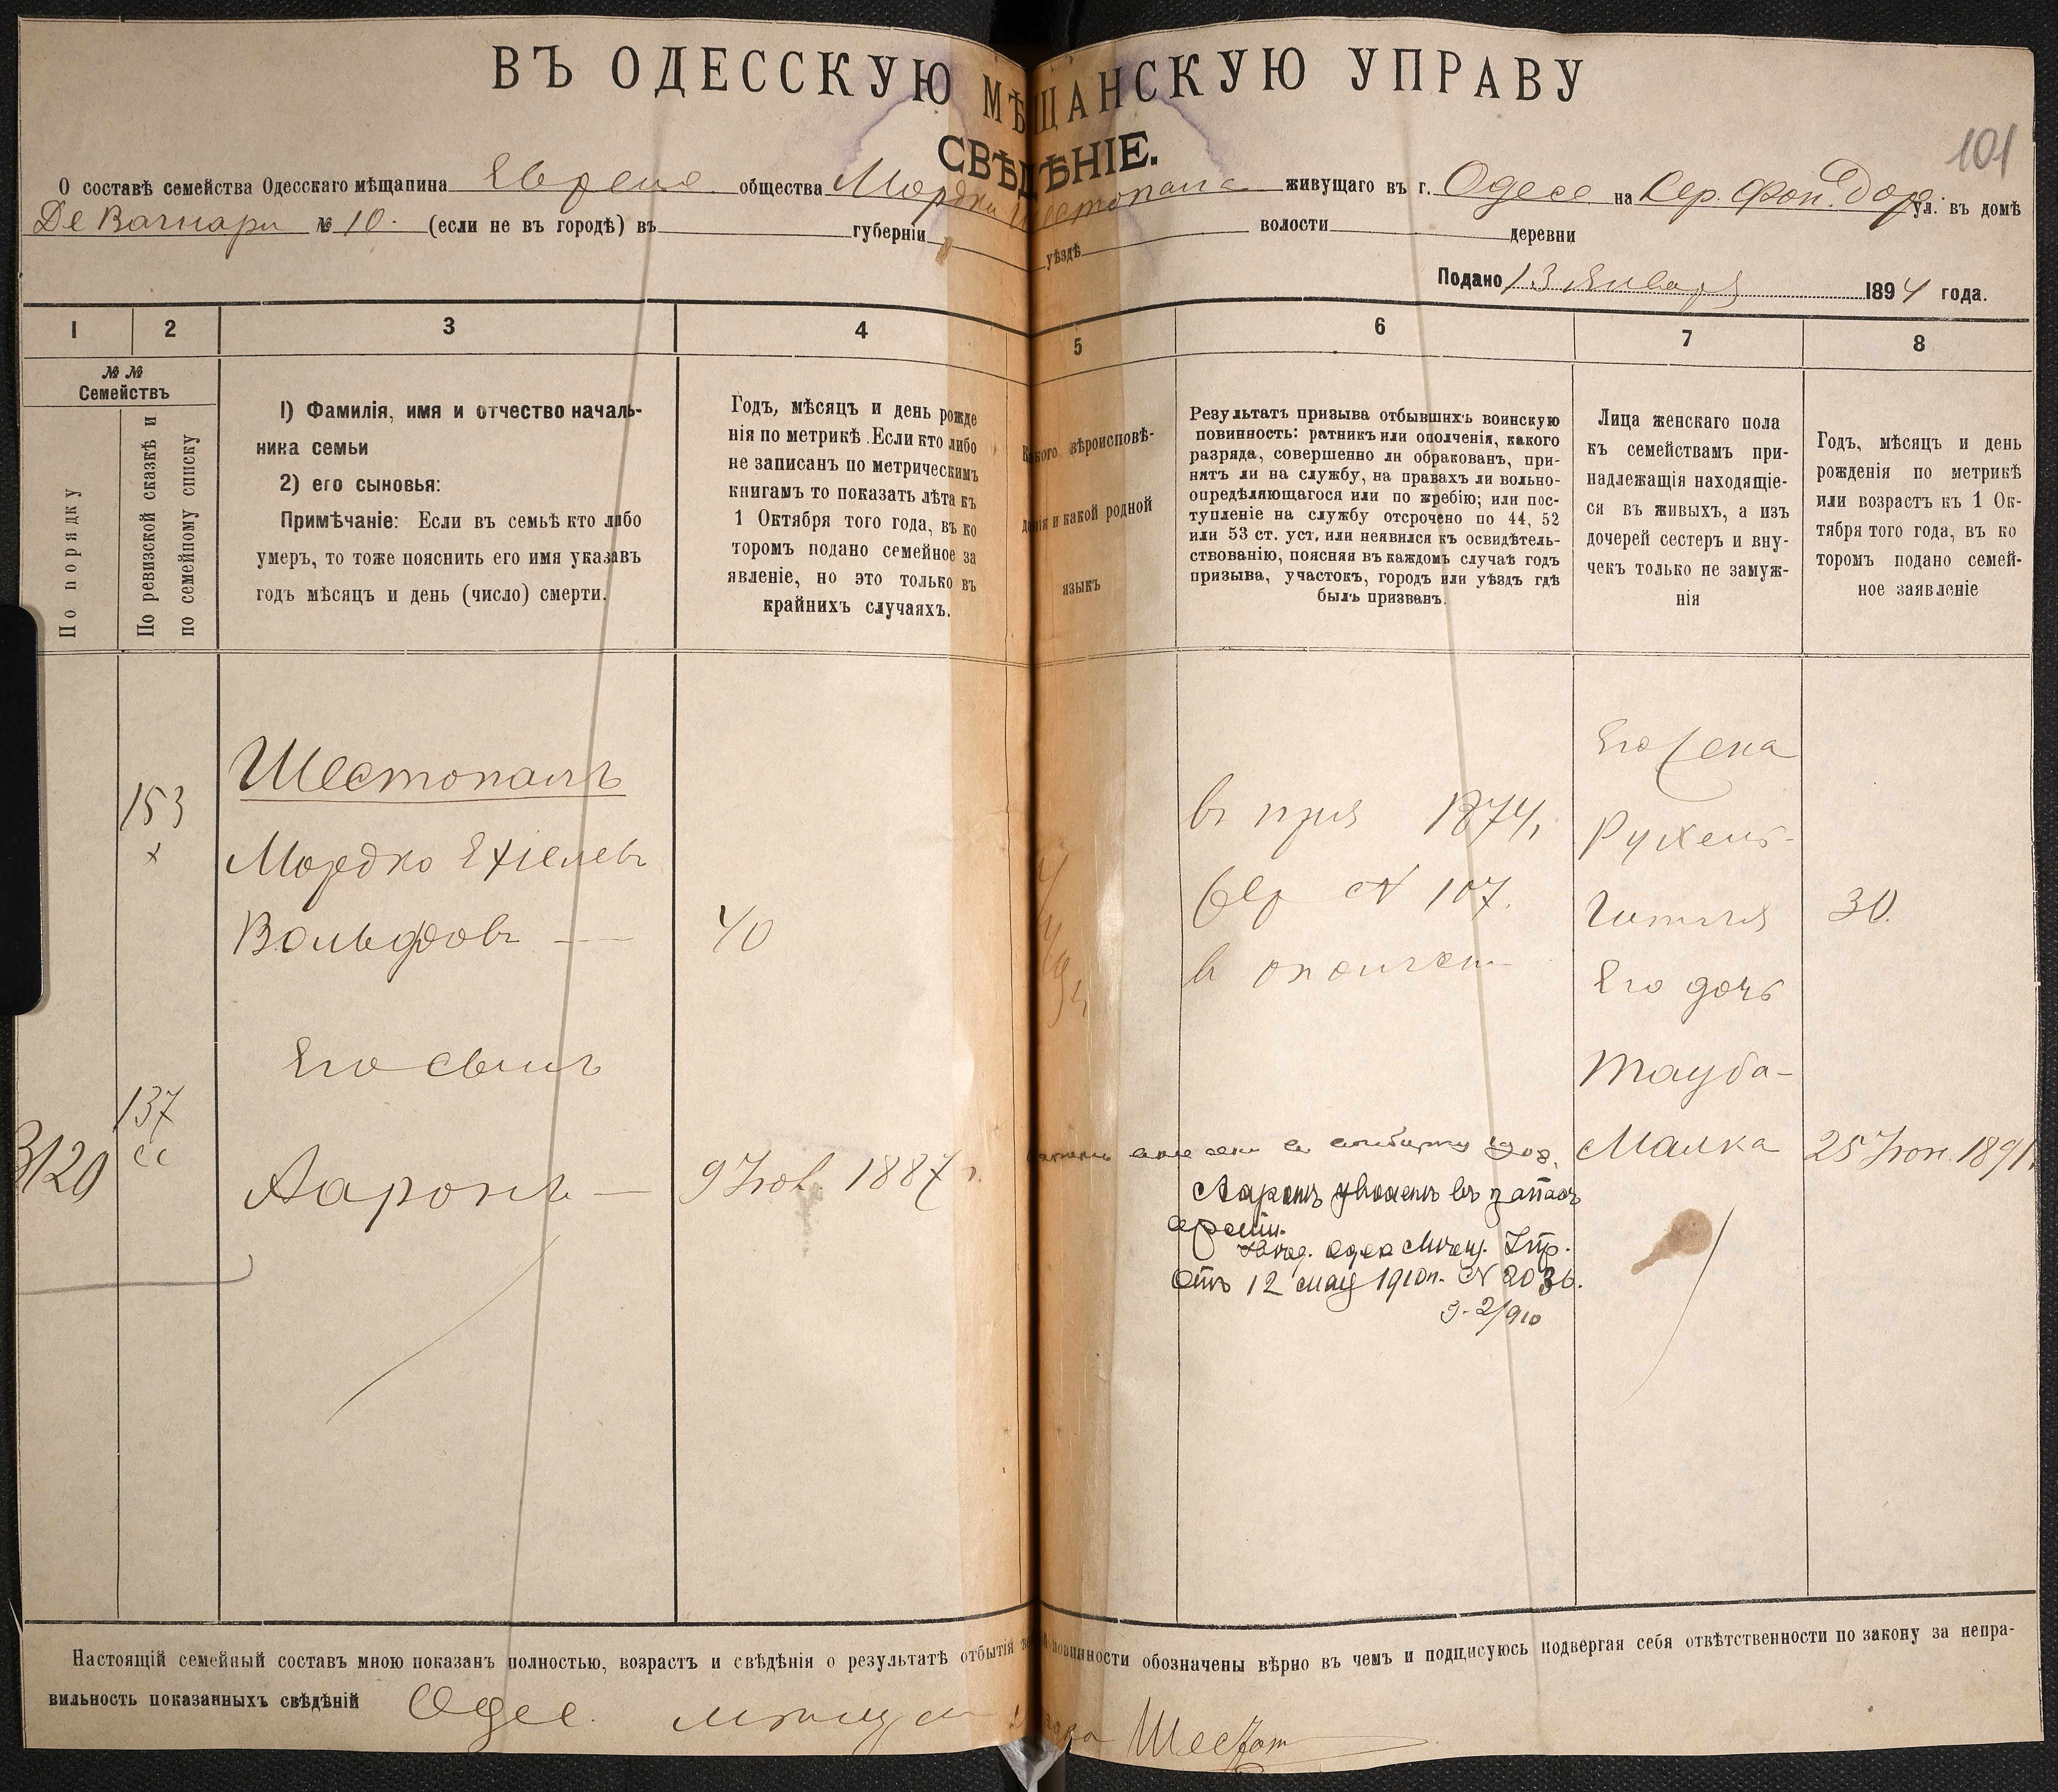 ВЪ ОДЕССКУЮ МѢЩАНСКУЮ УПРАВУ
СВѢДѢНІЕ.
101
О составѣ семейства Одесскаго мѣщанина Еврейс. общества Мордки Шестопала живущаго въ г. Одесе на Сер. Фон. Доро. ул. въ домѣ
Де Вагнари № 10. (если не въ городѣ) въ губерніи уѣздѣ волости деревни
Подано 13 Января 1894 года.
1 2 3 4 5 6 7 8
№ №
Семействъ
По порядку
По ревизской сказкѣ и
по семейному списку
1) Фамилія, имя и отчество началь-
ника семьи
2) его сыновья:
Примѣчаніе: Если въ семьѣ кто либо
умеръ, то тоже пояснить его имя указавъ
годъ мѣсяцъ и день (число) смерти.
Годъ, мѣсяцъ и день рожде
нія по метрикѣ. Если кто либо
не записанъ по метрическимъ
книгамъ то показать лѣта къ
1 Октября того года, въ ко
торомъ подано семейное за
явленіе, но это только въ
крайнихъ случаяхъ.
Какого вѣроисповѣ-
данія и какой родной
языкъ
Результатъ призыва отбывшихъ воинскую
повинность: ратникъ или ополченія, какого
разряда, совершенно ли обракованъ, при-
нятъ ли на службу, на правахъ ли вольно-
опредѣляющагося или по жребію; или пос-
тупленіе на службу отсрочено по 44, 52
или 53 ст. уст. или неявился къ освидѣтель-
ствованію, поясняя въ каждомъ случаѣ годъ
призыва, участокъ, городъ или уѣздъ гдѣ
былъ призванъ.
Лица женскаго пола
къ семействамъ при-
надлежащія находящіе-
ся въ живыхъ, а изъ
дочерей сестеръ и вну-
чекъ только не замуж-
нія
Годъ, мѣсяцъ и день
рожденія по метрикѣ
или возрастъ къ 1 Ок-
тября того года, въ ко
торомъ подано семей-
ное заявленіе
153
х
Шестопалъ
Мордко Ехіелевъ
Вольфовъ —
40
въ приз 1874,
жер № 107.
в ополчен
Его жена
Рухель-
Гитля
30.
Его дочь
Тауба-
Малка
25 Іюн. 1891.
Его сынъ
137
сс
3120
Ааронъ —
9 Іюл 1887 г.
Ааронъ уволенъ въ запасъ
арміи.
Увед. Одес Мѣщ. Упр.
отъ 12 мая 1910 г. № 2036.
3-2/910
Настоящій семейный составъ мною показанъ полностью, возрастъ и свѣдѣнія о результатѣ отбытія повинности обозначены вѣрно въ чемъ и подписуюсь подвергая себя отвѣтственности по закону за непра-
вильность показанныхъ свѣдѣній Одес. Шестоп